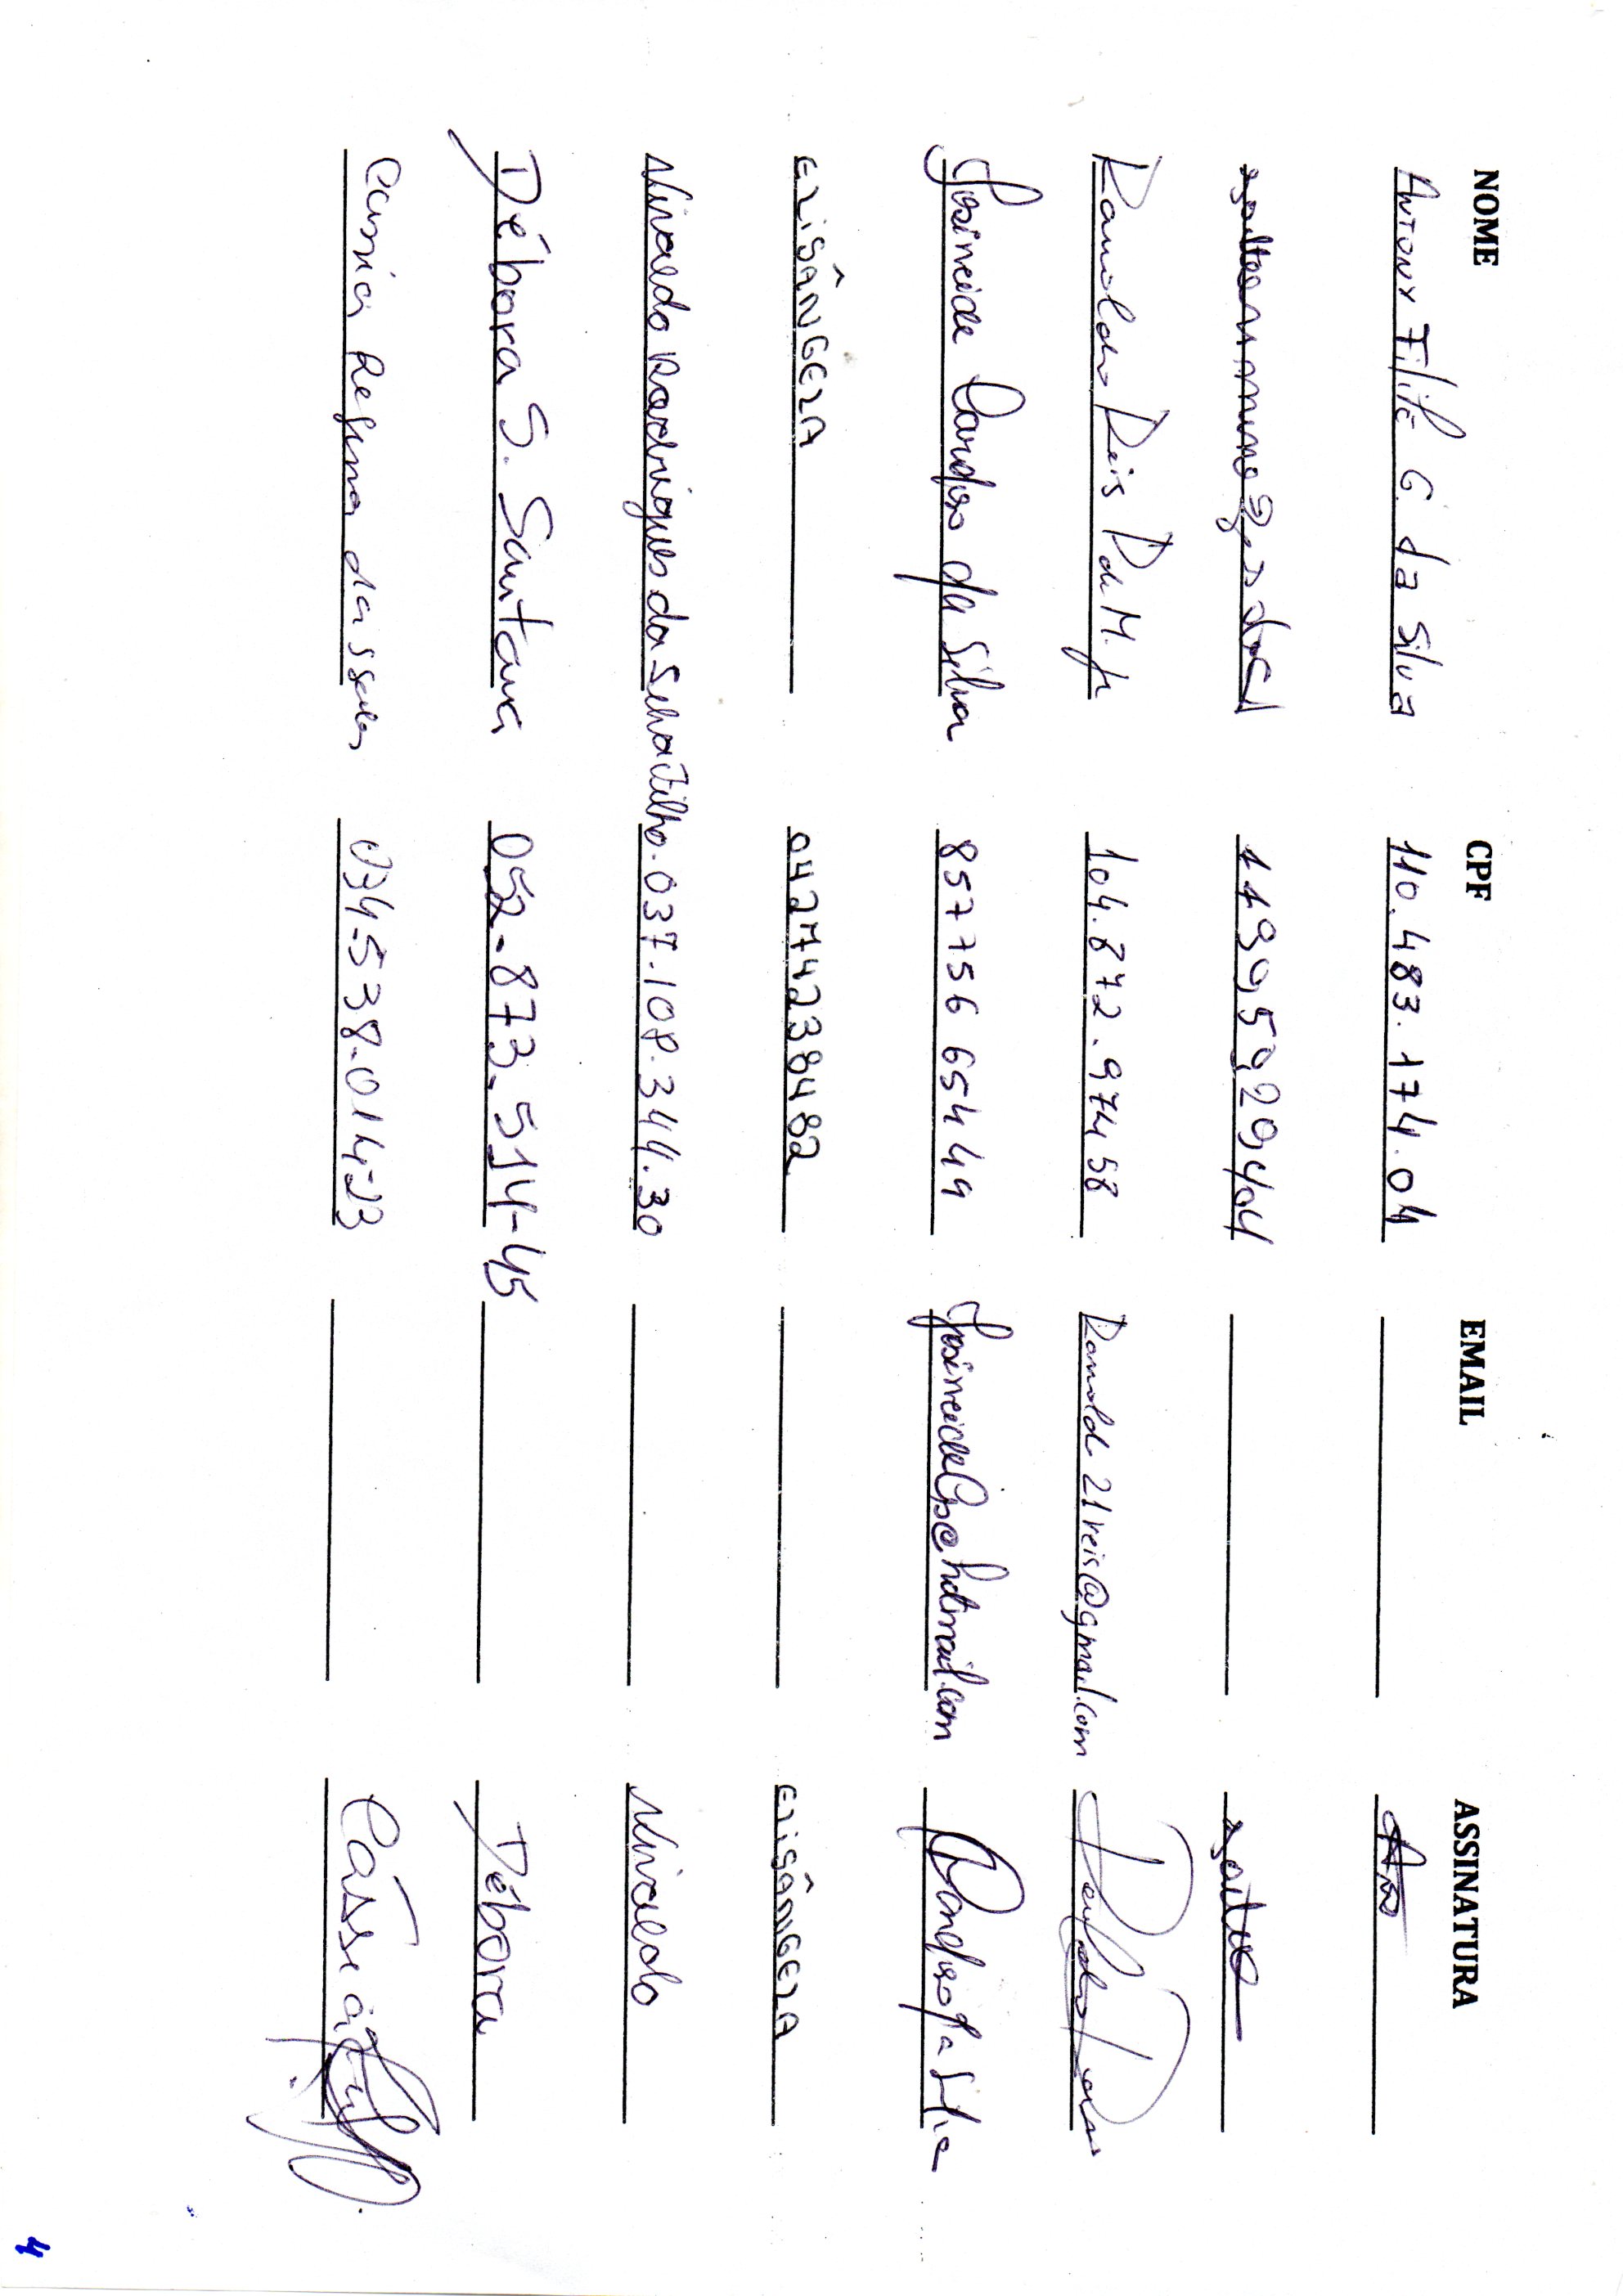 NOME CPF EMAIL ASSINATURA
Antony Filipe G. da Silva 110.483.174.04
11995929404
Ranoldo Reis R de M. Jr 104.872.974 58 Ranold21reis@gmail.com
Josineide Cardoso da Silva 857756 654 49 Cardoso da Silva
ELISÂNGELA 04274238482 ELISÂNGELA
Nivaldo Rodrigues da Silva Filho. 037.108.344.30 Nivaldo
Débora S. Santana 052-873.514-45 Débora
Cassia Regina da 034.538.014-23 Cássia
4